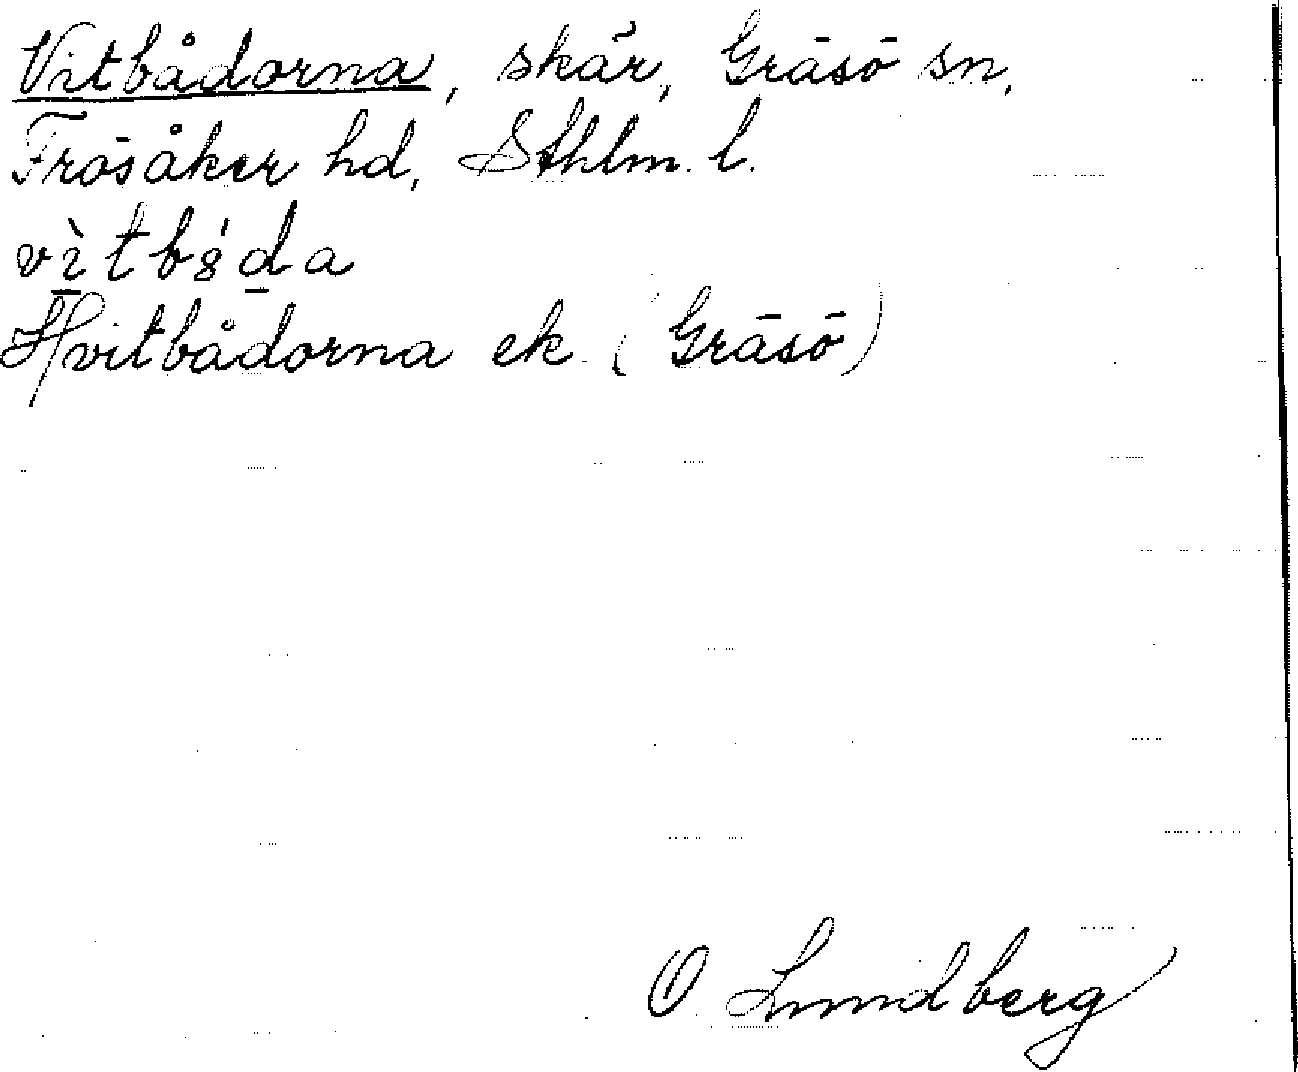 Vitbådorna, skär, Gräsö sn,
Frösåker hd, Sthlm. l.
Hvitbådorna ek (Gräsö)
O Lundberg